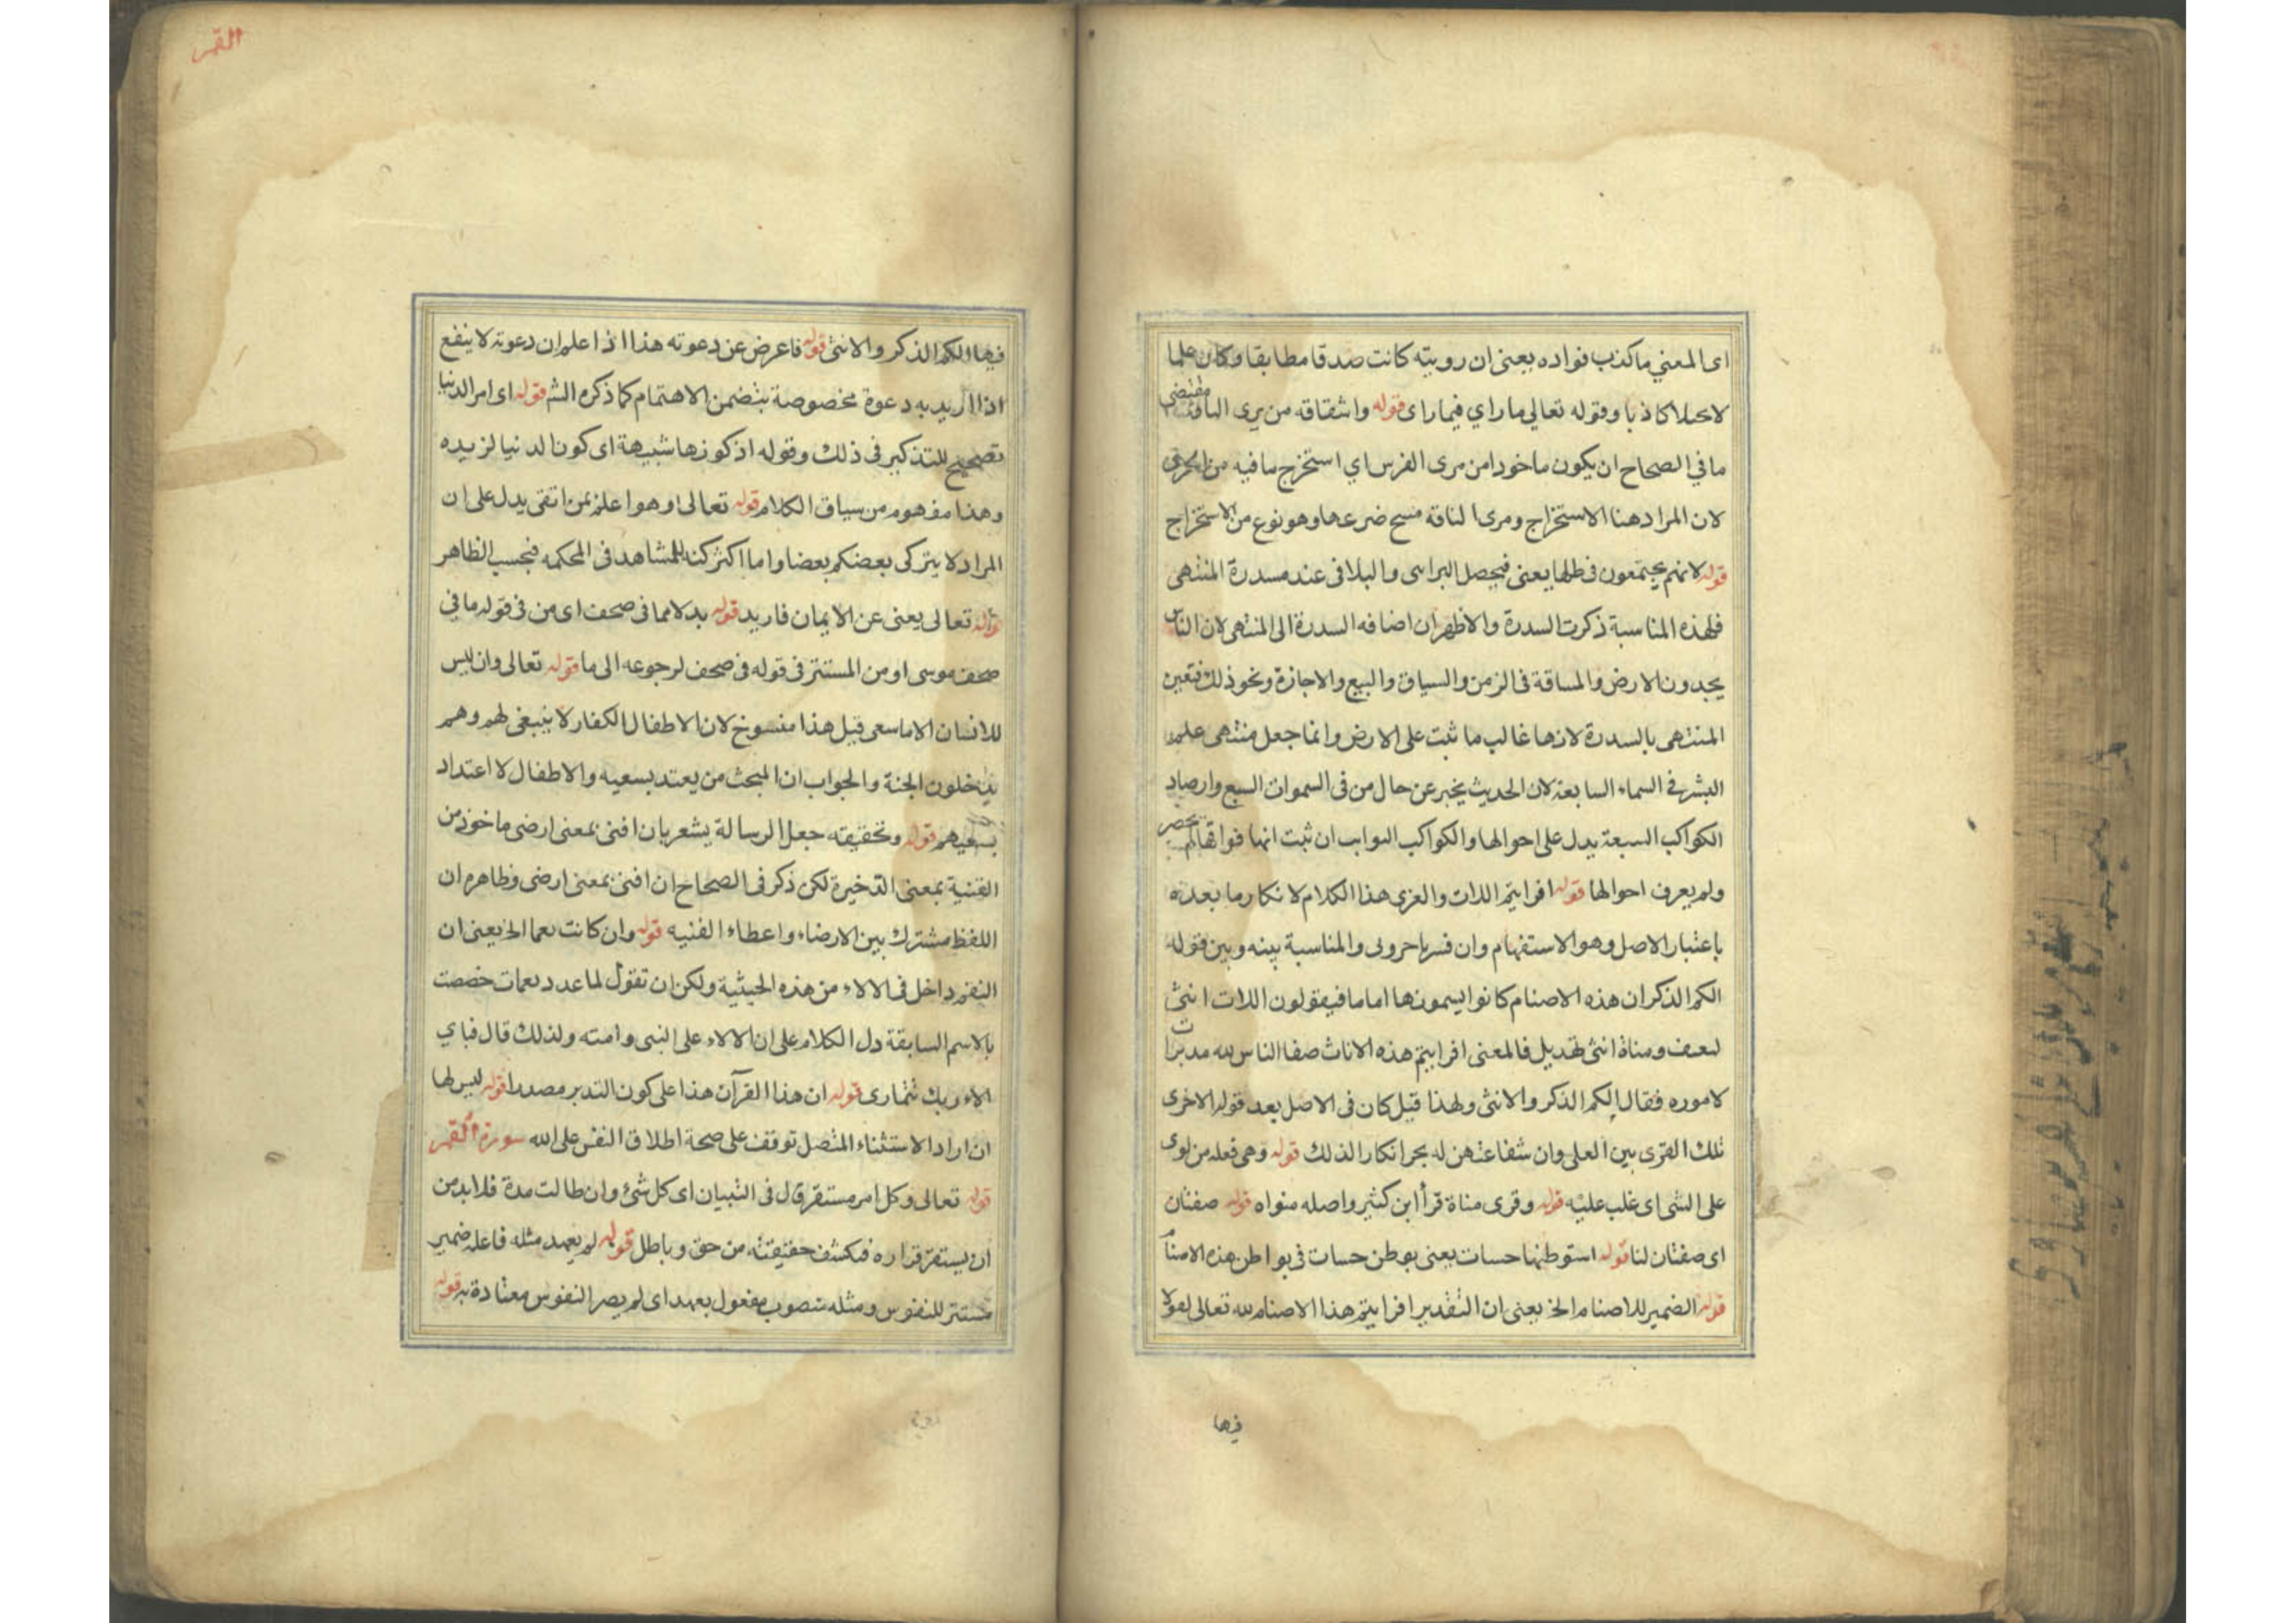 اى المعني ما كذب فواده بعنى ان رويته كانت صدقا مطابقا وكان علما
لا كاذبا وقوله تعالى ما راي فيما راى قوله واشقاقه من يرى
ما في الصحاح ان يكون ماخودا من مرى الفرس اي استخرج ما فيه من الجرى
لان المراد هنا الاستخراج ومرى الناقه مسح ضرعها وهو نوع من الاستخراج
قوله لانهم يجتمعون في ظلها يعنى فيحصل والبلافى عند مسدرة المنتهى
فلهذه المناسبة ذكرت السدرة والاظهر ان اضافه السدرة الى المنتهى لان الناس
يجدون الارض والمساقة فى الزمن والسياق والبيع والاجازة ونحو ذلك فتعين
المنتهى بالسدرة لانها غالب ما ثبت على الارض وانما جعل منتهى علم
البشر في السماء السابعة لان الحديث يخبر عن حال من فى السموات السبع وارصاد
الكواكب السبعة يدل على احوالها والكواكب ان ثبت انها فواقها لم يحصر
ولم يعرف احوالها قوله افرايتم اللات والعزى هذا الكلام لانكار ما بعده
باعتبار الاصل وهو الاستفهام وان فسر باخرونى والمناسبة بينه وبين قوله
الكم الذكر ان هذه الاصنام كانوا يسمونها اماما فيقولون اللات انثى
ومناة انثى لهديل فالمعنى افرايتم هذه الاناث صفا الناس لله مدبرات
لاموره فقال الكم الذكر والانثى ولهذا قيل كان فى الاصل بعد قوله الاخرى
تلك القرى بين العلى وان شفاعتهن له بحر انكار الذلك قوله وهى فعله من لوى
على الشى اى غلب عليه قوله وقرى مناة قرأ ابن كثير واصله منواه قوله صفتان
اى صفتان لنا قوله استوطنها حسات يعنى بوطن حسات فى بواطن هذه الامنا
قوله الضمير للاصنام الخ يعنى ان التقدير افرايتم هذا الاصنام لله تعالى
فيها
القمر
فيها الكم الذكر والانثى قوله فاعرض عن دعوته هذا اذا علم ان دعوته لا ينفع
اذا اريد به دعوة مخصوصة بتضمن الاهتمام كما ذكره الش قوله اى امر الدنيا
تصحيح للتذكير فى ذلك وقوله اذ كونها شبيهة اى كون الدنيا لزيده
وهذا مفهوم من سياق الكلام قوله تعالى وهو اعلم بمن اتقى يدل على ان
المراد لا يتركى بعضكم بعضا واما اكثر كنه للمشاهد فى المحكمه فبحسب الظاهر
قوله تعالى يعنى عن الايمان فاريد قوله بدلا مما فى صحف اى من فى قوله ما في
صحف موسى او من المستتر فى قوله فى صحف لرجوعه الى ما قوله تعالى وان ليس
للانسان الا ما سعى قيل هذا منسوخ لان الاطفال الكفار لا ينبغى لهم وهم
يدخلون الجنة والجواب ان المبحث من يعتد بسعيه والاطفال لا اعتداد
بسعيهم قوله وتحقيقه جعل الرسالة يشعر بان اقنى بمعنى ارضى ماخوذ من
القنية بمعنى الذخيرة لكن ذكر فى الصحاح ان اقنى بمعنى ارضى وظاهره ان
اللفظ مشترك بين الارضاء واعطاء القنيه قوله وان كانت نعما الخ يعنى ان
النقم داخل فى الالاء من هذه الحيثية ولكن ان تقول لما عدد نعمات خصصت
بالاسم السابقة دل الكلام على ان الالاء على النبى وامته ولذلك قال فباي
الاء ربك تتمارى قوله ان هذا القرآن هذا على كون التدبر مصدرا قوله ليس لها
ان اراد الاستثناء المتصل توقف على صحة اطلاق النفس على الله سورة القمر
قوله تعالى وكل امر مستقر قال فى التبيان اى كل شئ وان طالت مدة فلا بد من
ان يستقر قراره فتكشف حقيقته من حق وباطل قوله لم يعهد مثله فاعله ضمير
مستتر للنفوس ومثله منصوب مفعول بعهد اى لم يصر النفوس معتادة به قوله